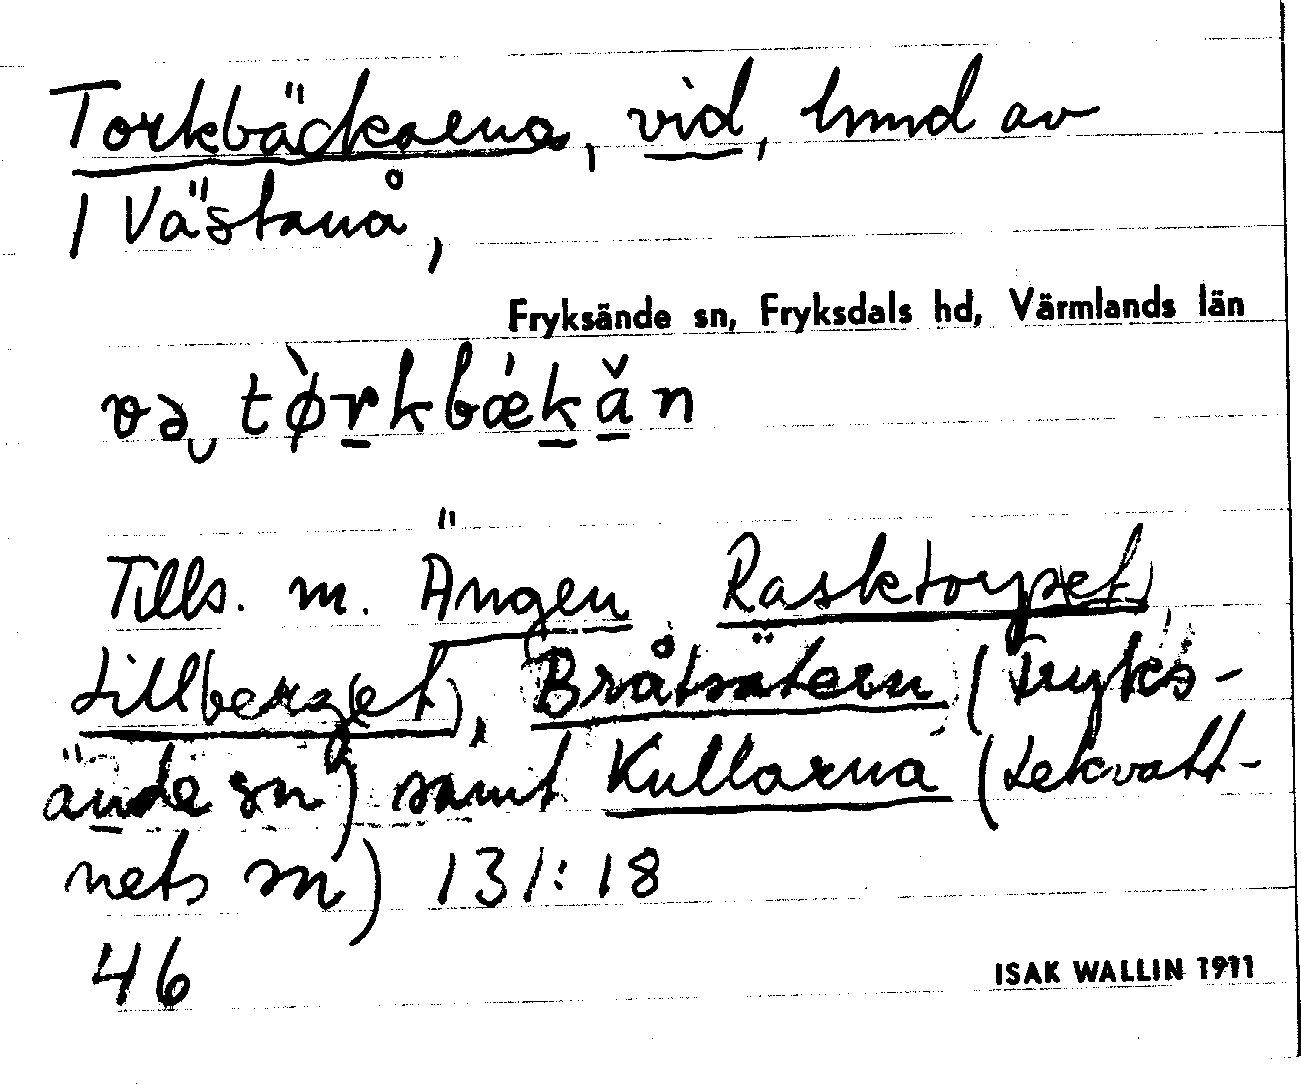 Torkbäckarna, vid, hmd av
1 Västanå,
Fryksände sn, Fryksdals hd, Värmlands län
və tø̀rkbǽkăn
Tills. m. Ängen, Rasktorpet,
Lillberget, Bråtsätern (Fryks-
ände sn) samt Kullarna (Lekvatt-
nets sn) 131:18
46
ISAK WALLIN 1911